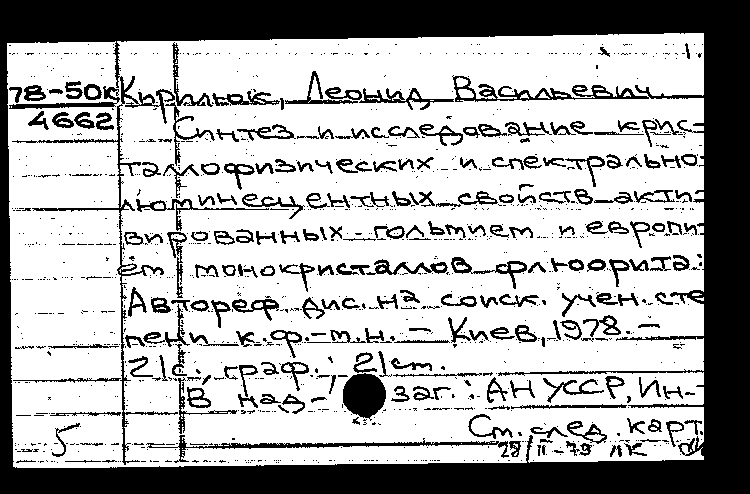 1.
78-50к Кирилюк, Леонид Васильевич.
4662
Синтез и исследование крис-
таллофизических и спектрально-
люминесцентных свойств акти-
вированных гольмием и европи-
ем монокристаллов флюорита:
Автореф. дис. на соиск. учен. сте
пени к.ф.-м.н. — Киев, 1978. —
21с., граф.; 21см.
В над- заг.: АН УССР, Ин-
Ст. след. карт.
5